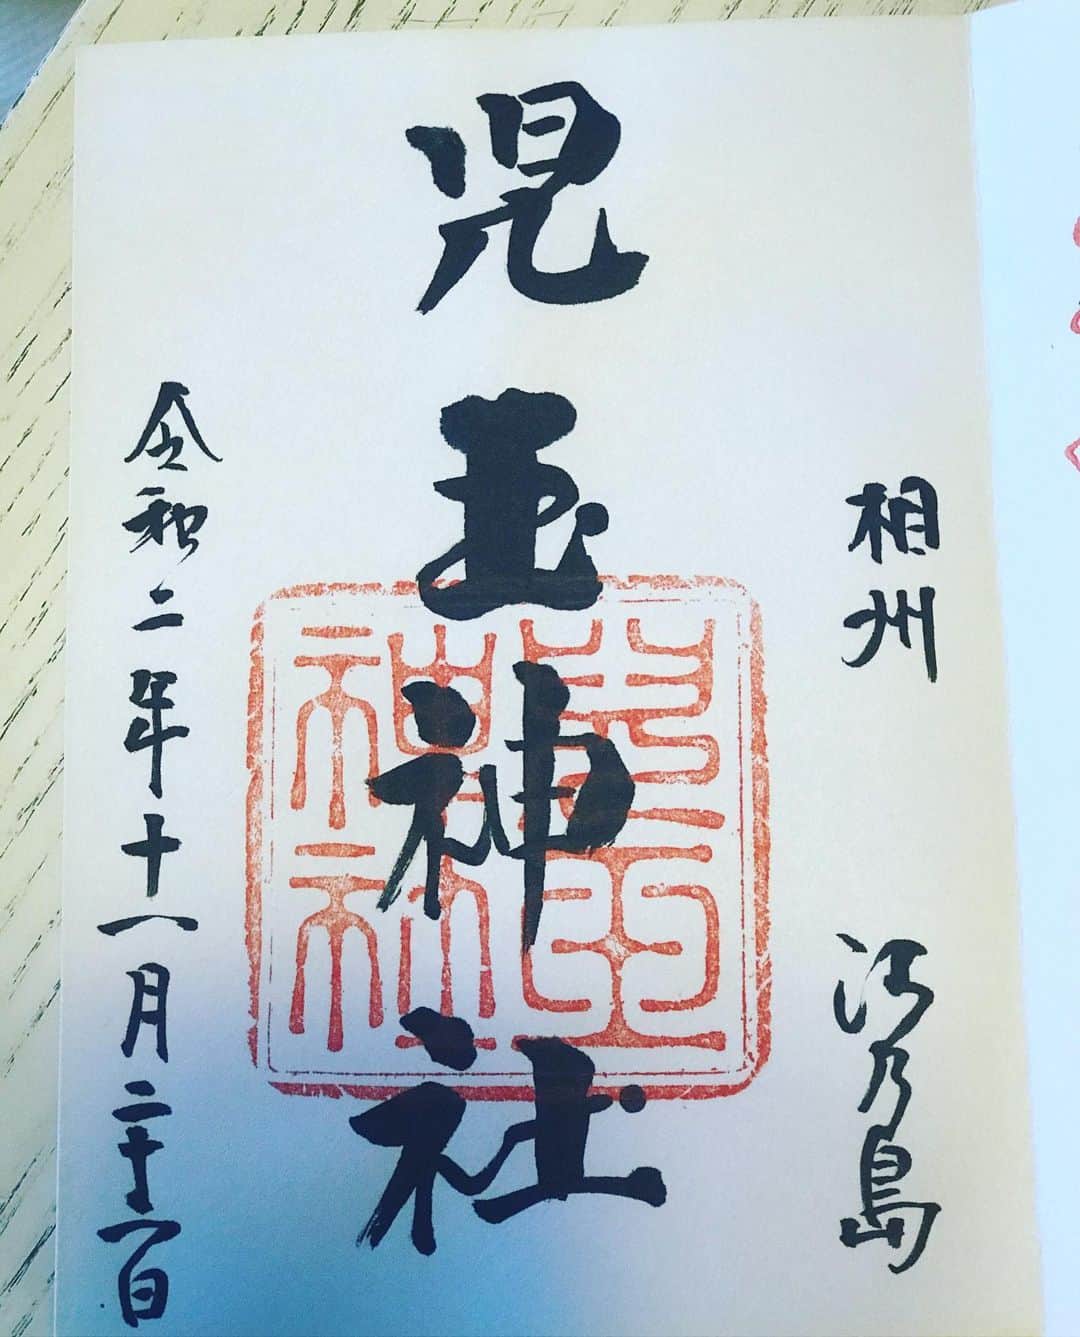 相州 江乃島
児玉神社
兒玉
神社
令和二年十一月二十一日